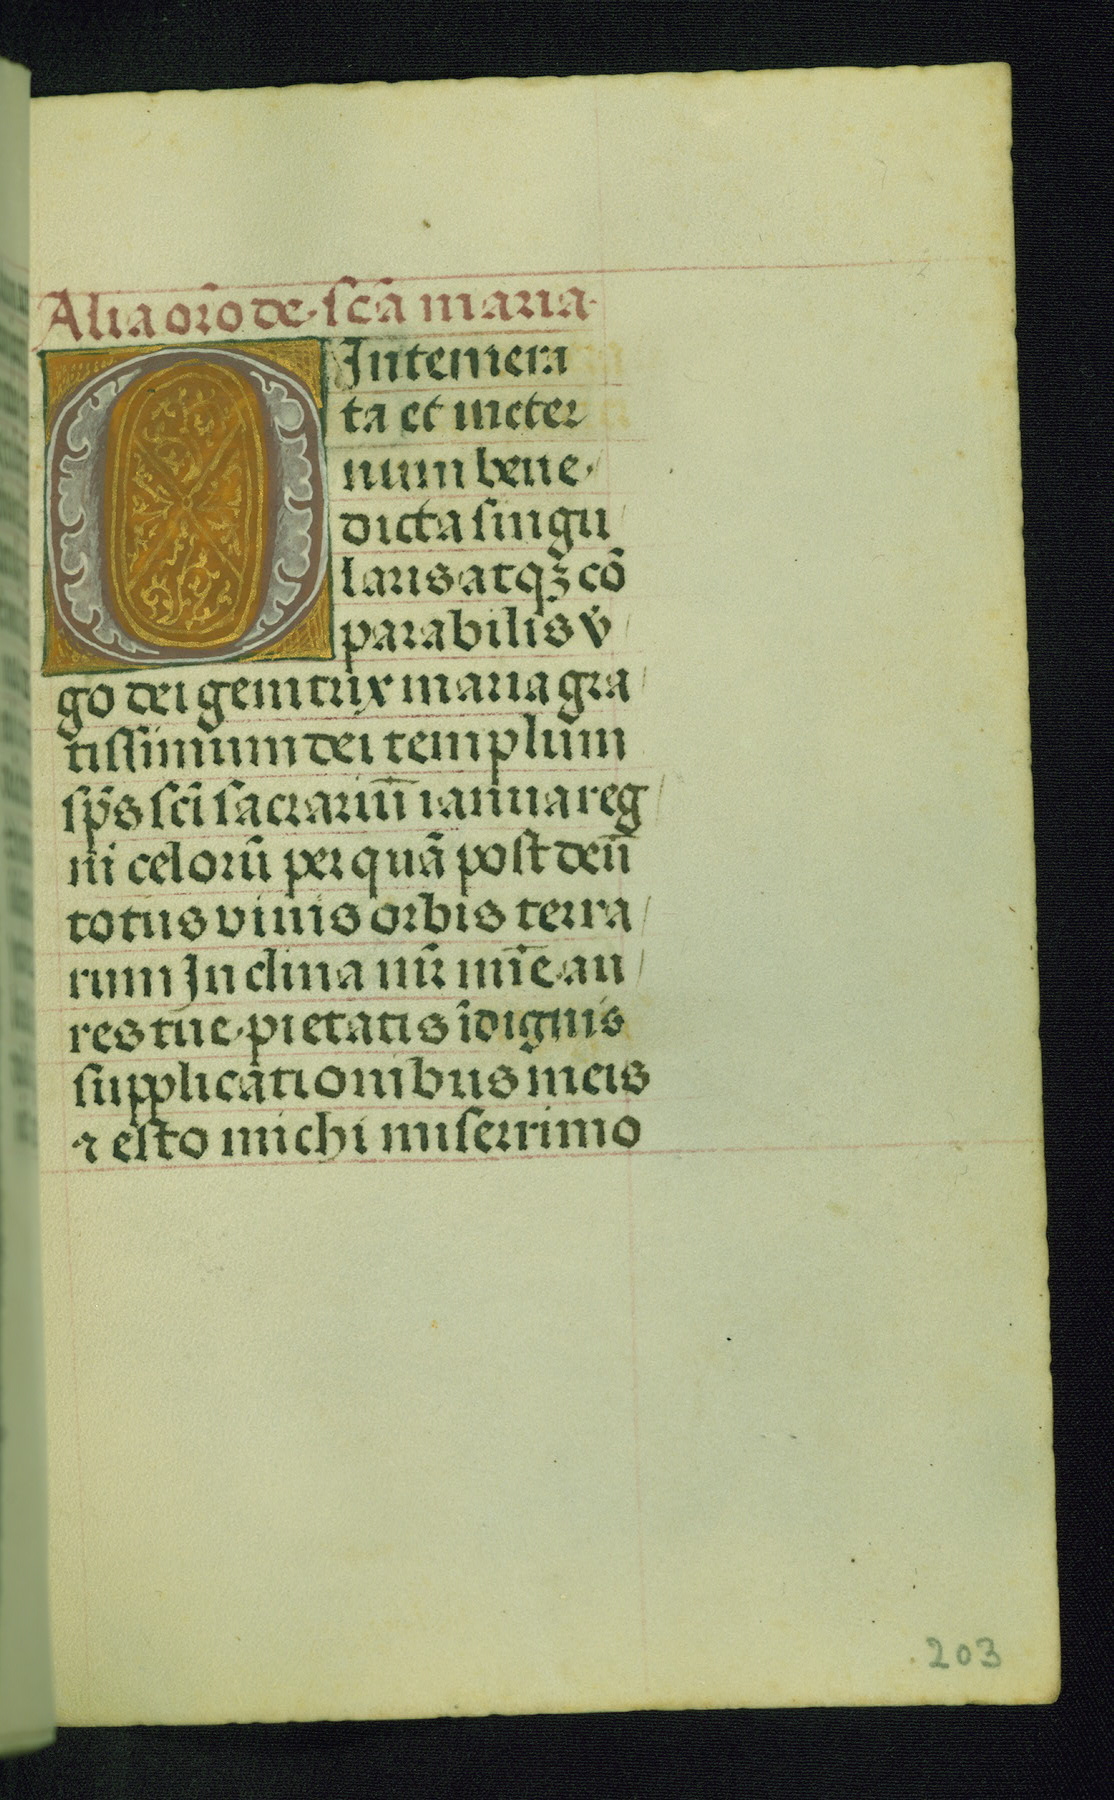 Alia orõ de scã maria
O Intemera
ta et ineter
num bene
dicta singu
laris atqꝫ cõ
parabilis v̇
go dei genitrix maria gra
tissimum dei templum
sp̃s sc̃i sacrariũ ianua reg
ni celorũ per quã post deũ
totus viuis orbis terra
rum Inclina nur̃ mĩe au
res tue pietatis ĩdignis
supplicationibus meis
⁊ esto michi miserrimo
203